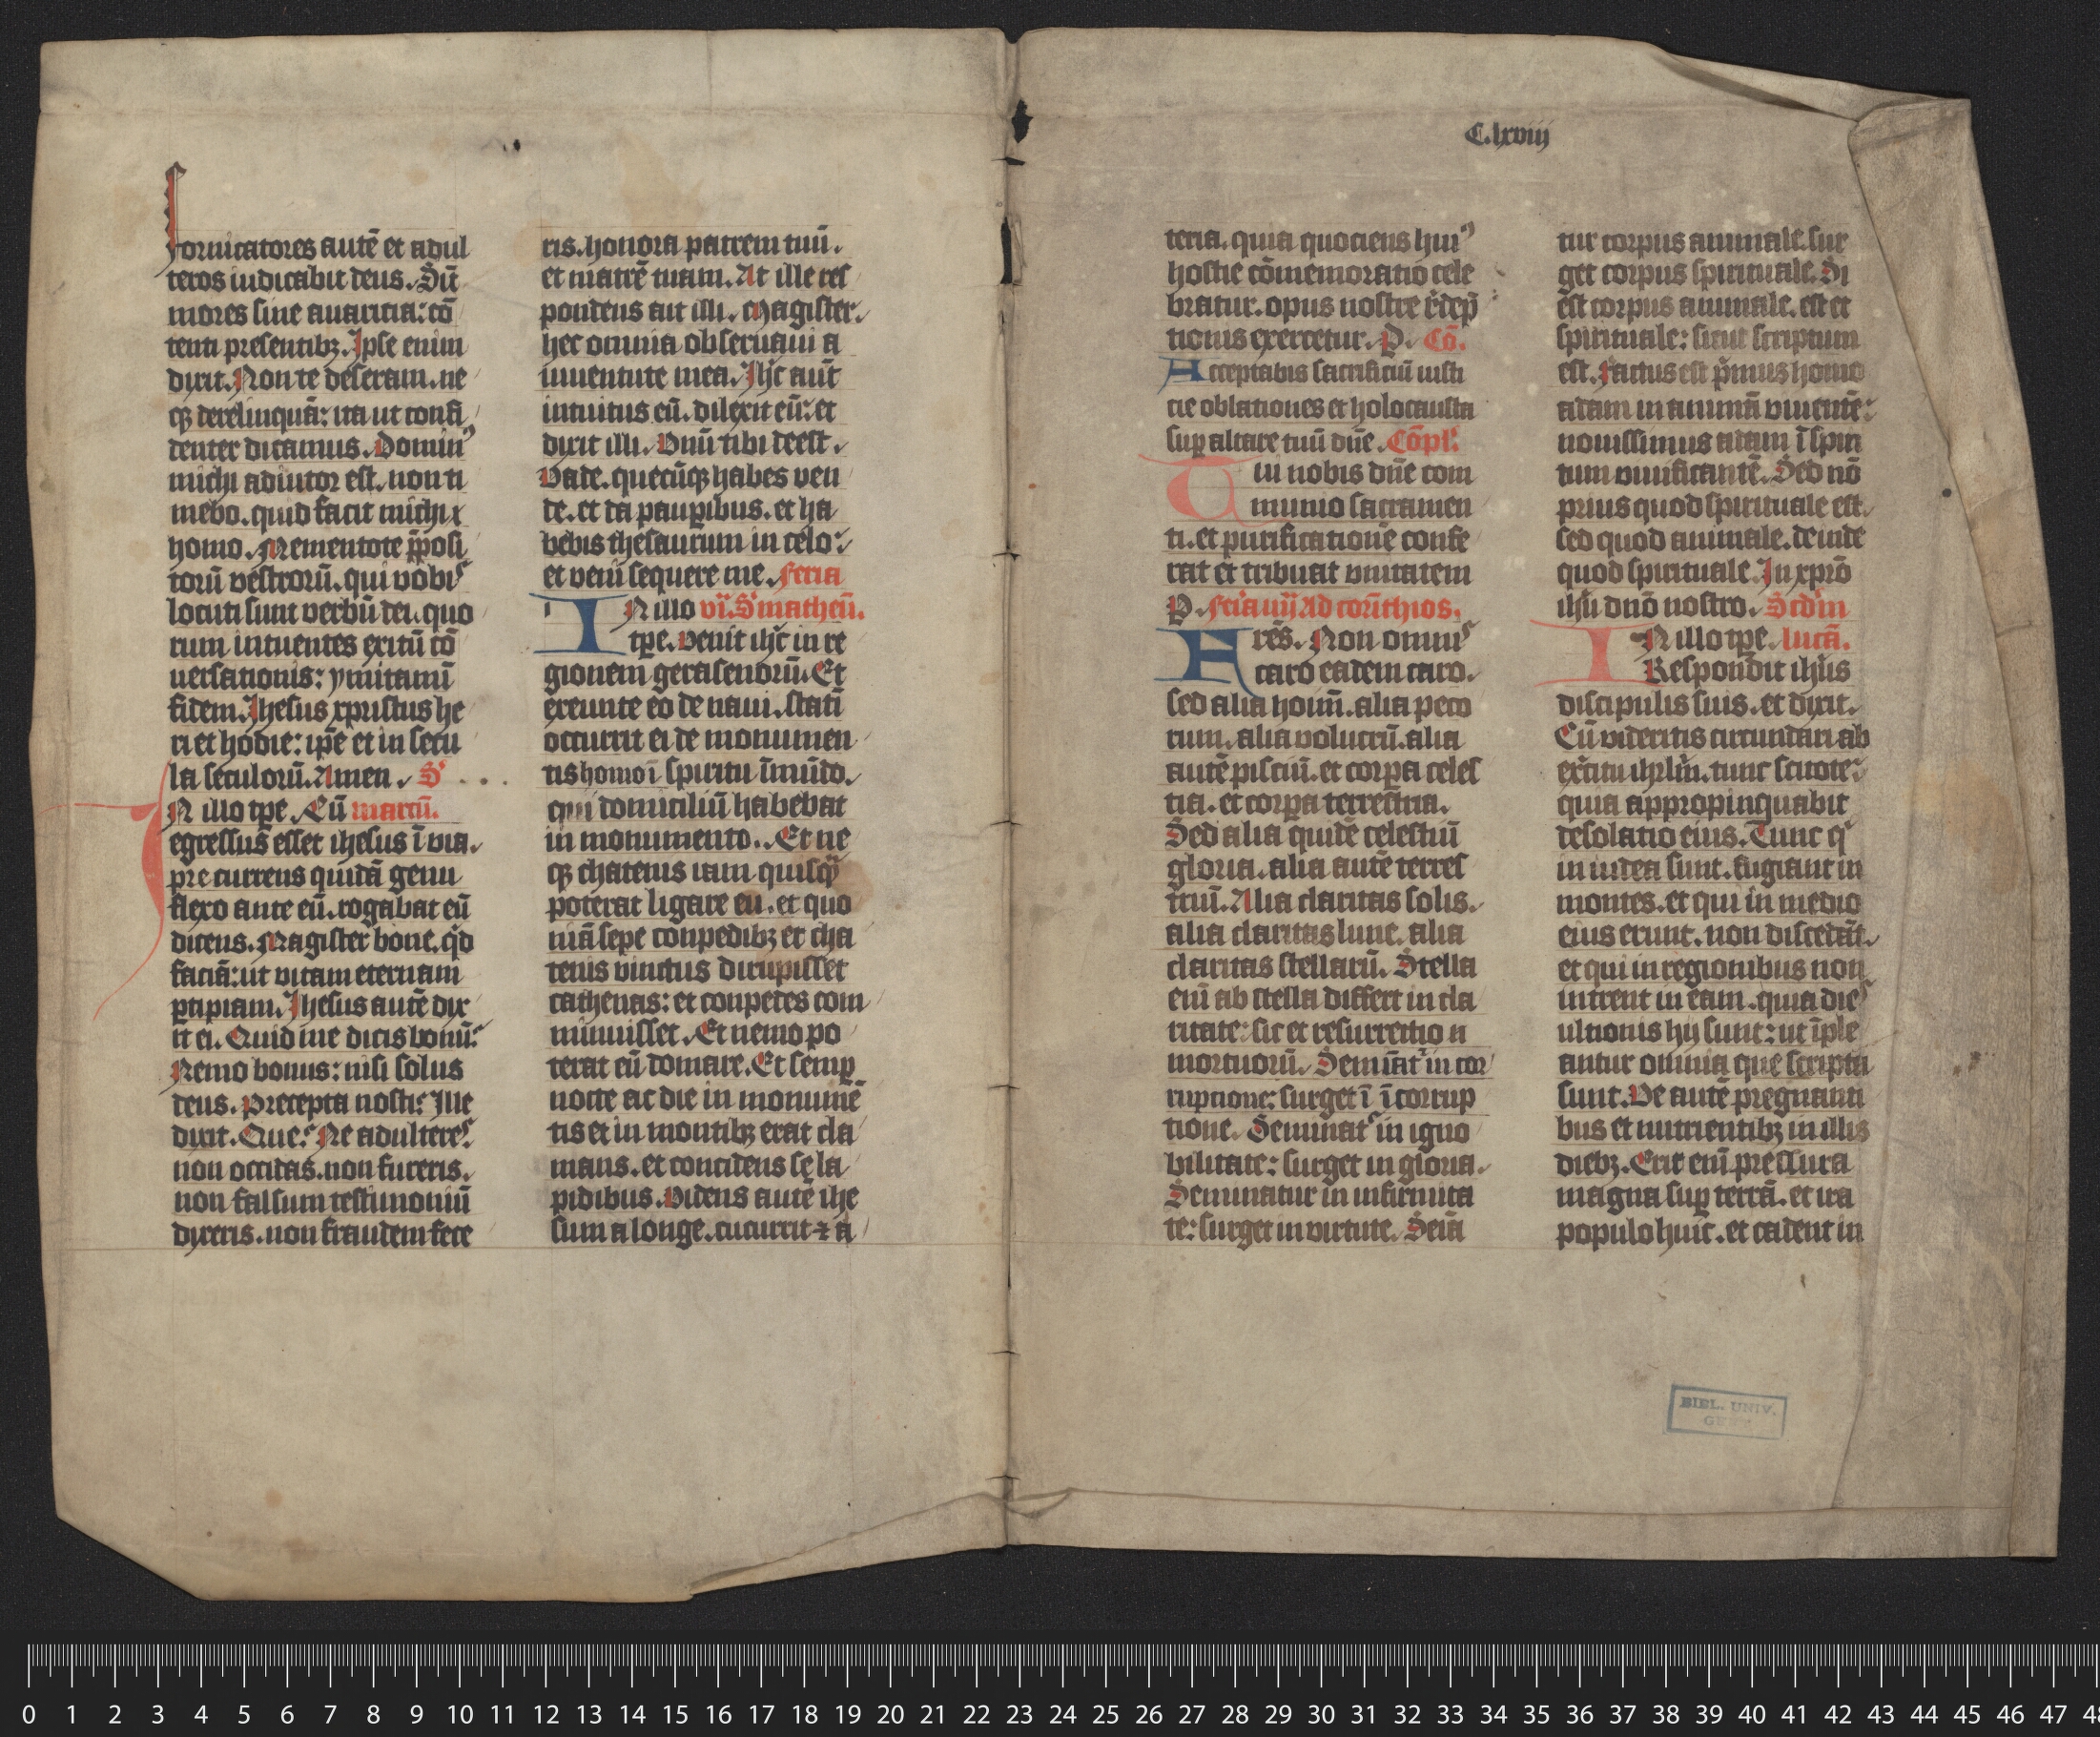 fornicatores autē et adul
teros iudicabit deus. Sīt
mores sine auaritia: cō
tenti presentibꝫ. Ipse enim
dixit. Non te deseram. ne
qꝫ derelinquā: ita ut confi
denter dicamus. Dominꝰ
michi adiutor est. non ti
mebo. quid facit michi
homo. Mementote p̄posi
torū vestrorū. qui vobis
locuti sunt verbū dei. quo
rum intuentes exitū cō
uersationis: ymitami
fidem. Ihesus xpristus he
ri et hodie: ip̄e et in secu
la seculorū. Amen. S'
N illo tp̄e. Cū marcū.
egressus esset ihesus ī via.
precurrens quidā genu
flexo ante eū. rogabat eū
dicens. Magister bone. qd
faciā: ut vitam eternam
ꝑcipiam. Ihesus autē dix
it ei. Quid me dicis bonū:
Nemo bonus: nisi solus
deus. Precepta nosti: Ille
dixit. Que: Ne adulteres.
non occidas. non fureris.
non falsum testimoniū
dixeris. non fraudem fece
ris. honora patrem tuū.
et matrē tuam. At ille res
pondens ait illi. Magister.
hec omnia obseruaui a
iuuentute mea. Ihc̄ aut̄
intuitus eū. dilexit eū: et
dixit illi. Vnū tibi deest.
Vade. quecūqꝫ habes ven
de. et da pauꝑibus. et ha
bebis thesaurum in celo:
et veni sequere me. feria
IN illo vi. S' matheū.
tꝑe. venit ihc̄ in re
gionem gerasenorū. Et
exeunte eo de naui. statī
occurrit ei de monumen
tis homo ī spiritu īmūdo.
qui domiciliū habebat
in monumento. Et ne
qꝫ chatenis iam quisqꝫ
poterat ligare eū. et quo
niā sepe conpedibꝫ et cha
tenis vinctus dirupisset
cathenas: et conpedes com
minuisset. Et nemo po
terat eū domare. Et semꝑ
nocte ac die in monumē
tis et in montibꝫ erat cla
mans. et concidens se la
pidibus. Videns autē ihe
sum a longe. cucurrit ⁊ a
C.lxviij
teria. quia quociens huiꝰ
hostie cōmemoratio cele
bratur. opus nostre redēp
tionis exercetur. P. Cō.
Acceptabis sacrificiū iusti
cie oblationes et holocausta
suꝑ altare tuū dn̄e. Cōpl'.
Tui nobis dn̄e com
munio sacramen
ti. et purificationē confe
rat et tribuat vnitatem
P. fe'ia iiij Ad corīthios.
Fres̄. Non omnis
caro eadem caro.
sed alia hoim̄. alia peco
rum. alia volucrū. alia
autē pisciū. et corꝑa celes
tia. et corꝑa terrestria.
Sed alia quidē celestiū
gloria. alia autē terres
triū. Alia claritas solis.
alia claritas lune. alia
claritas stellarū. Stella
enī ab stella differt in cla
ritate: sic et resurrectio
mortuorū. Seminat' in cor
ruptione: surget ī īcorrup
tione. Seminat' in igno
bilitate: surget in gloria.
Seminatur in infirmita
te: surget in virtute. Semīa
tur corpus animale. sur
get corpus spirituale. Si
est corpus animale. est et
spirituale: sicut scriptum
est. Factus est p̄mus homo
adam in animā viuentē:
nouissimus adam ī spiri
tum viuificantē. Sed nō
prius quod spirituale est.
sed quod animale. deinde
quod spirituale. In xpr̄o
ih̄u dn̄o nostro. Scd'm
IN illo tp̄e. lucā.
Respondit ihūs
discipulis suis. et dixit.
Cū videritis circundari ab
ex̄citu ihrl̄m. tunc scitote:
quia appropinquabit
desolatio eius. Tunc qⁱ
in iudea sunt. fugiant in
montes. et qui in medio
eius erunt. non discedāt.
et qui in regionibus non
intrent in eam. quia dies
ultionis hij sunt: ut īple
antur omnia que scripta
sunt. Ve autē pregnanti
bus et nutrientibꝫ in illis
diebꝫ. Erit enī pressura
magna suꝑ terrā. et ira
populo huic. et cadent in
BIBL. UNIV.
0 1 2 3 4 5 6 7 8 9 10 11 12 13 14 15 16 17 18 19 20 21 22 23 24 25 26 27 28 29 30 31 32 33 34 35 36 37 38 39 40 41 42 43 44 45 46 47